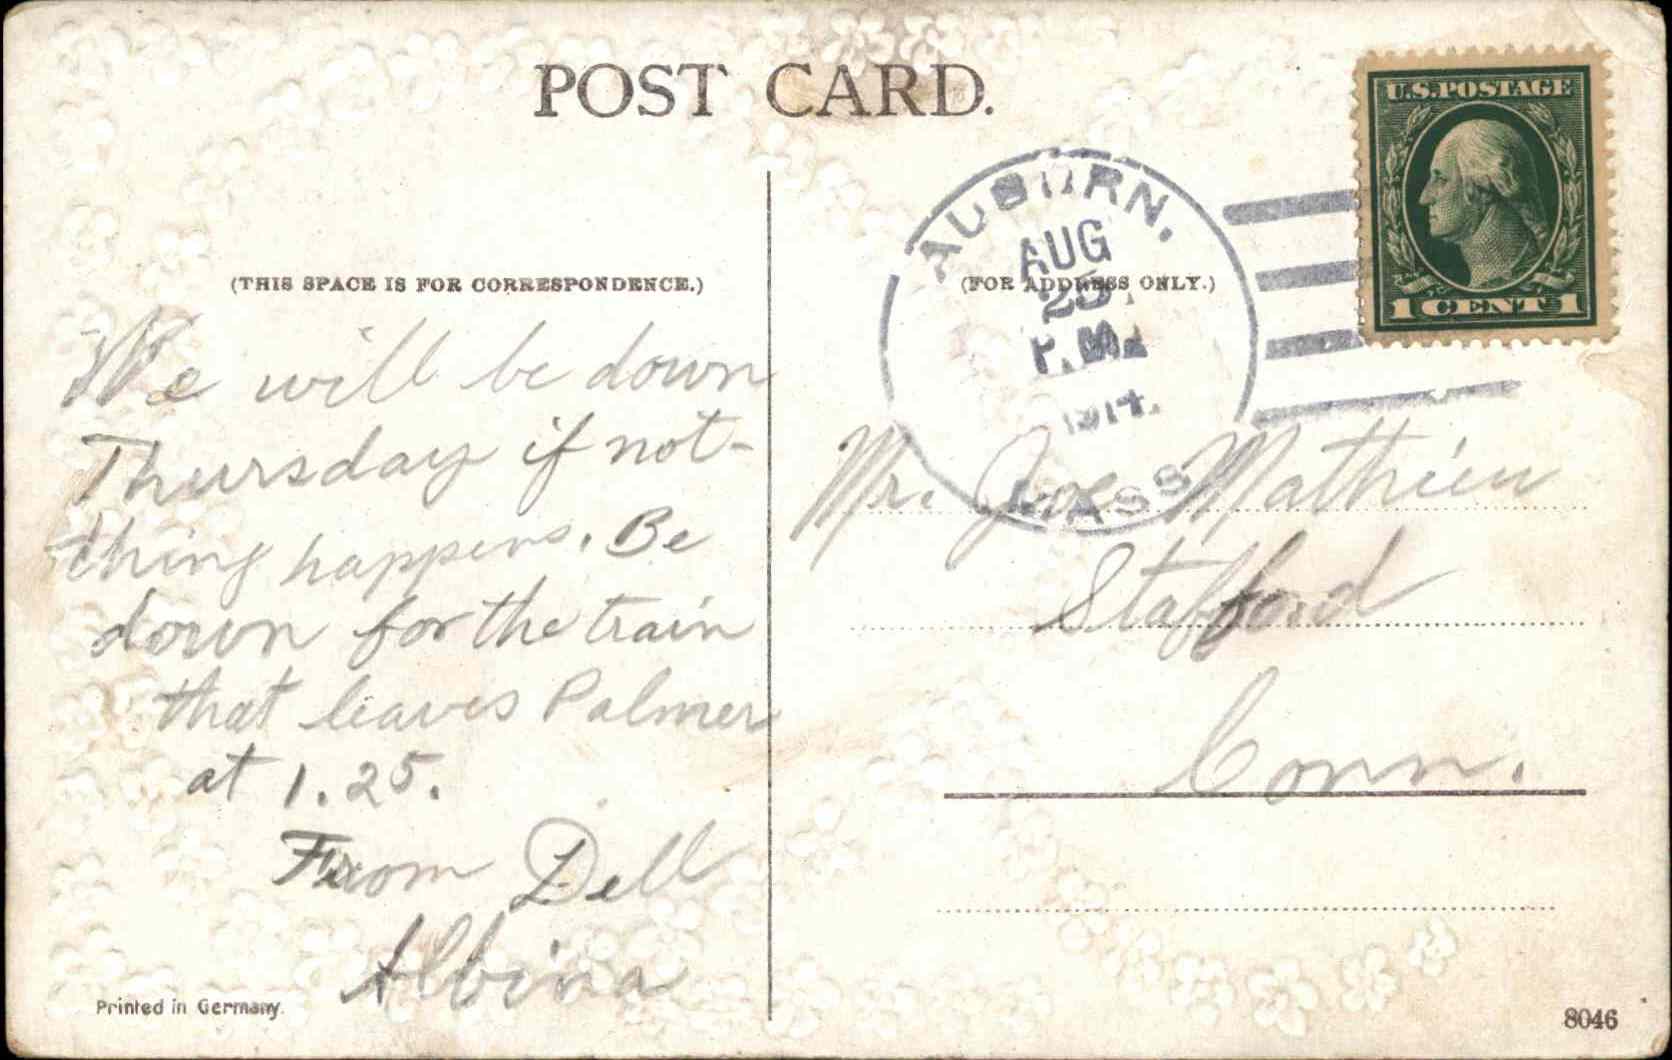 POST CARD.
U.S. POSTAGE
1 CENT 1
AUBURN.
AUG
25
P.M.
1914.
MASS
(THIS SPACE IS FOR CORRESPONDENCE.)
(FOR ADDRESS ONLY.)
We will be down
Thursday if not-
thing happens. Be
down for the train
that leaves Palmer
at 1.25.
From Dell
Albina
Mr. Joe Mathieu
Stafford
Conn.
Printed in Germany.
8046